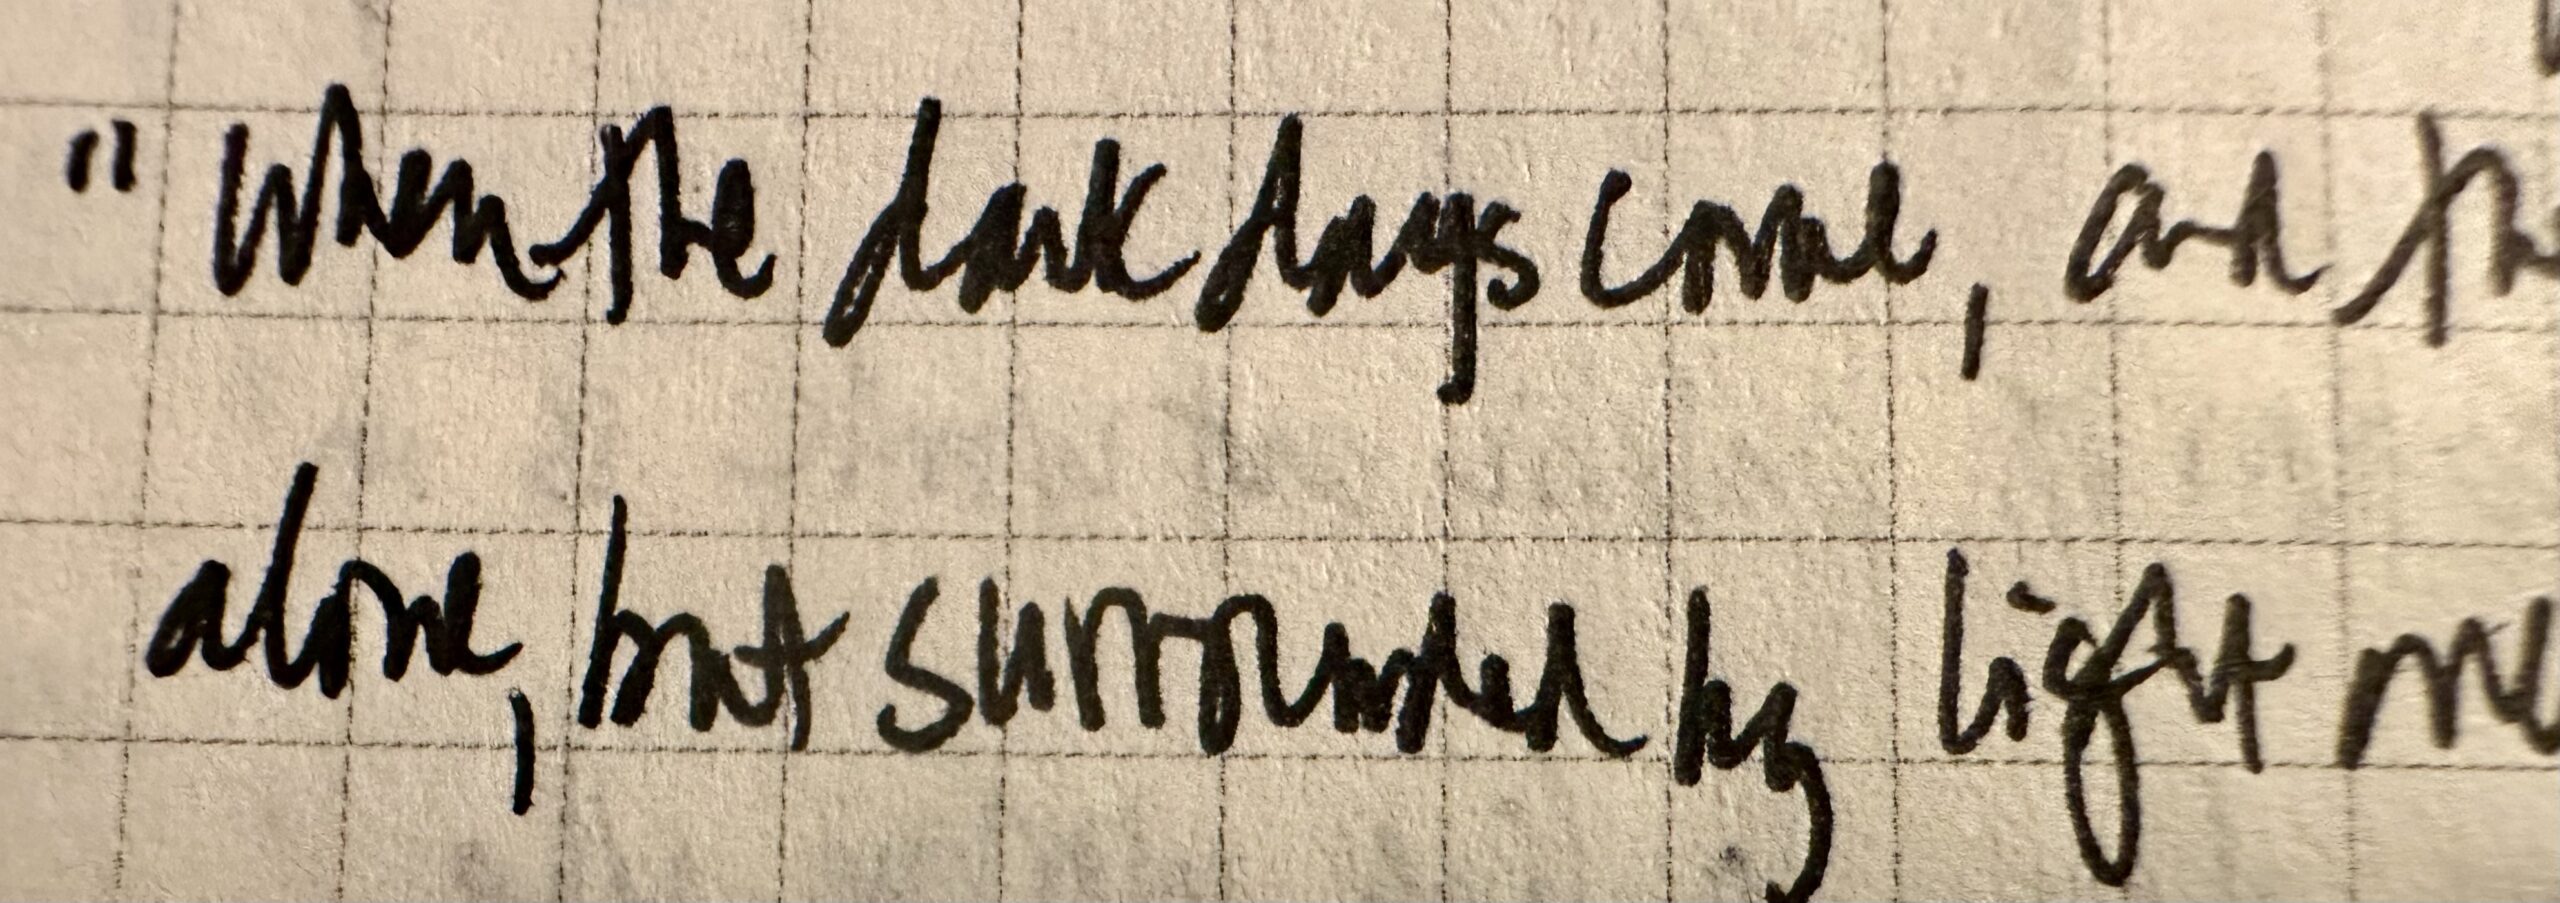 "When the dark days come, and the
alone, but surrounded by light